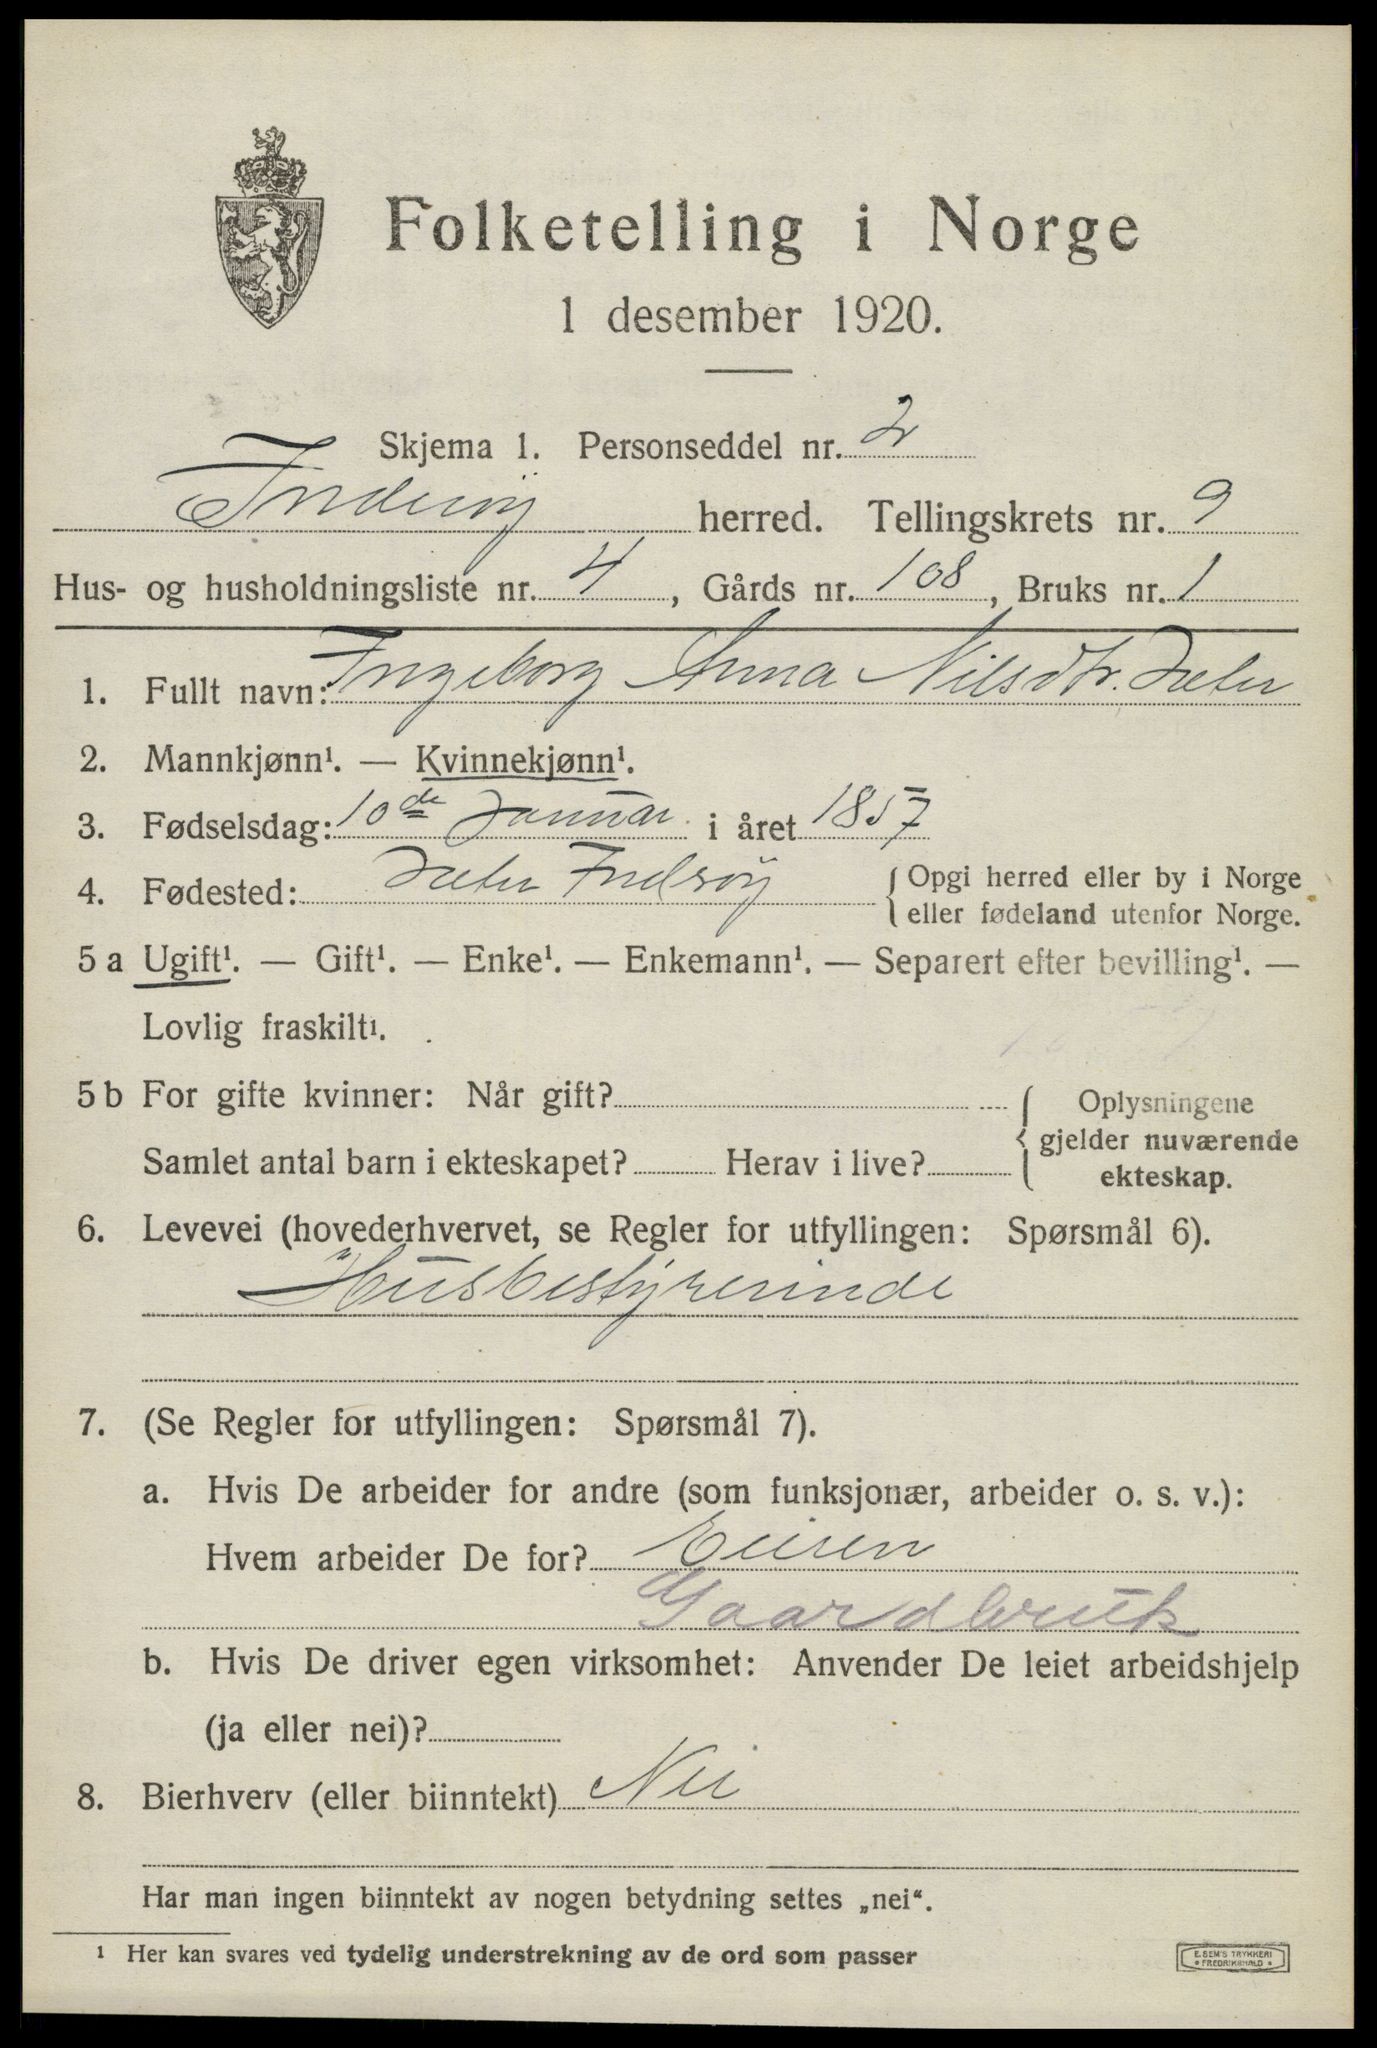 Folketelling i Norge
1 desember 1920.
Skjema 1. Personseddel nr. 2
Inderøy herred. Tellingskrets nr. 9
Hus- og husholdningsliste nr. 4, Gårds nr. 108, Bruks nr. 1
1. Fullt navn: Ingeborg Anna Nilsdtr.
2. Mannkjønn¹. — Kvinnekjønn¹.
3. Fødselsdag: 10de Januar i året 1857
4. Fødested: Inderøy { Opgi herred eller by i Norge
eller fødeland utenfor Norge.
5 a Ugift¹. — Gift¹. — Enke¹. — Enkemann¹. — Separert efter bevilling¹. —
Lovlig fraskilt¹.
5 b For gifte kvinner: Når gift? { Oplysningene
gjelder nuværende
ekteskap.
Samlet antal barn i ekteskapet? Herav i live?
6. Levevei (hovederhvervet, se Regler for utfyllingen: Spørsmål 6).
Husbestyrerinde
7. (Se Regler for utfyllingen: Spørsmål 7).
a. Hvis De arbeider for andre (som funksjonær, arbeider o. s. v.):
Hvem arbeider De for? Eieren
Gaardbruk
b. Hvis De driver egen virksomhet: Anvender De leiet arbeidshjelp
(ja eller nei)?
8. Bierhverv (eller biinntekt) Nei
Har man ingen biinntekt av nogen betydning settes „nei“.
¹ Her kan svares ved tydelig understrekning av de ord som passer
E. SEM'S TRYKKERI
FREDRIKSHALD